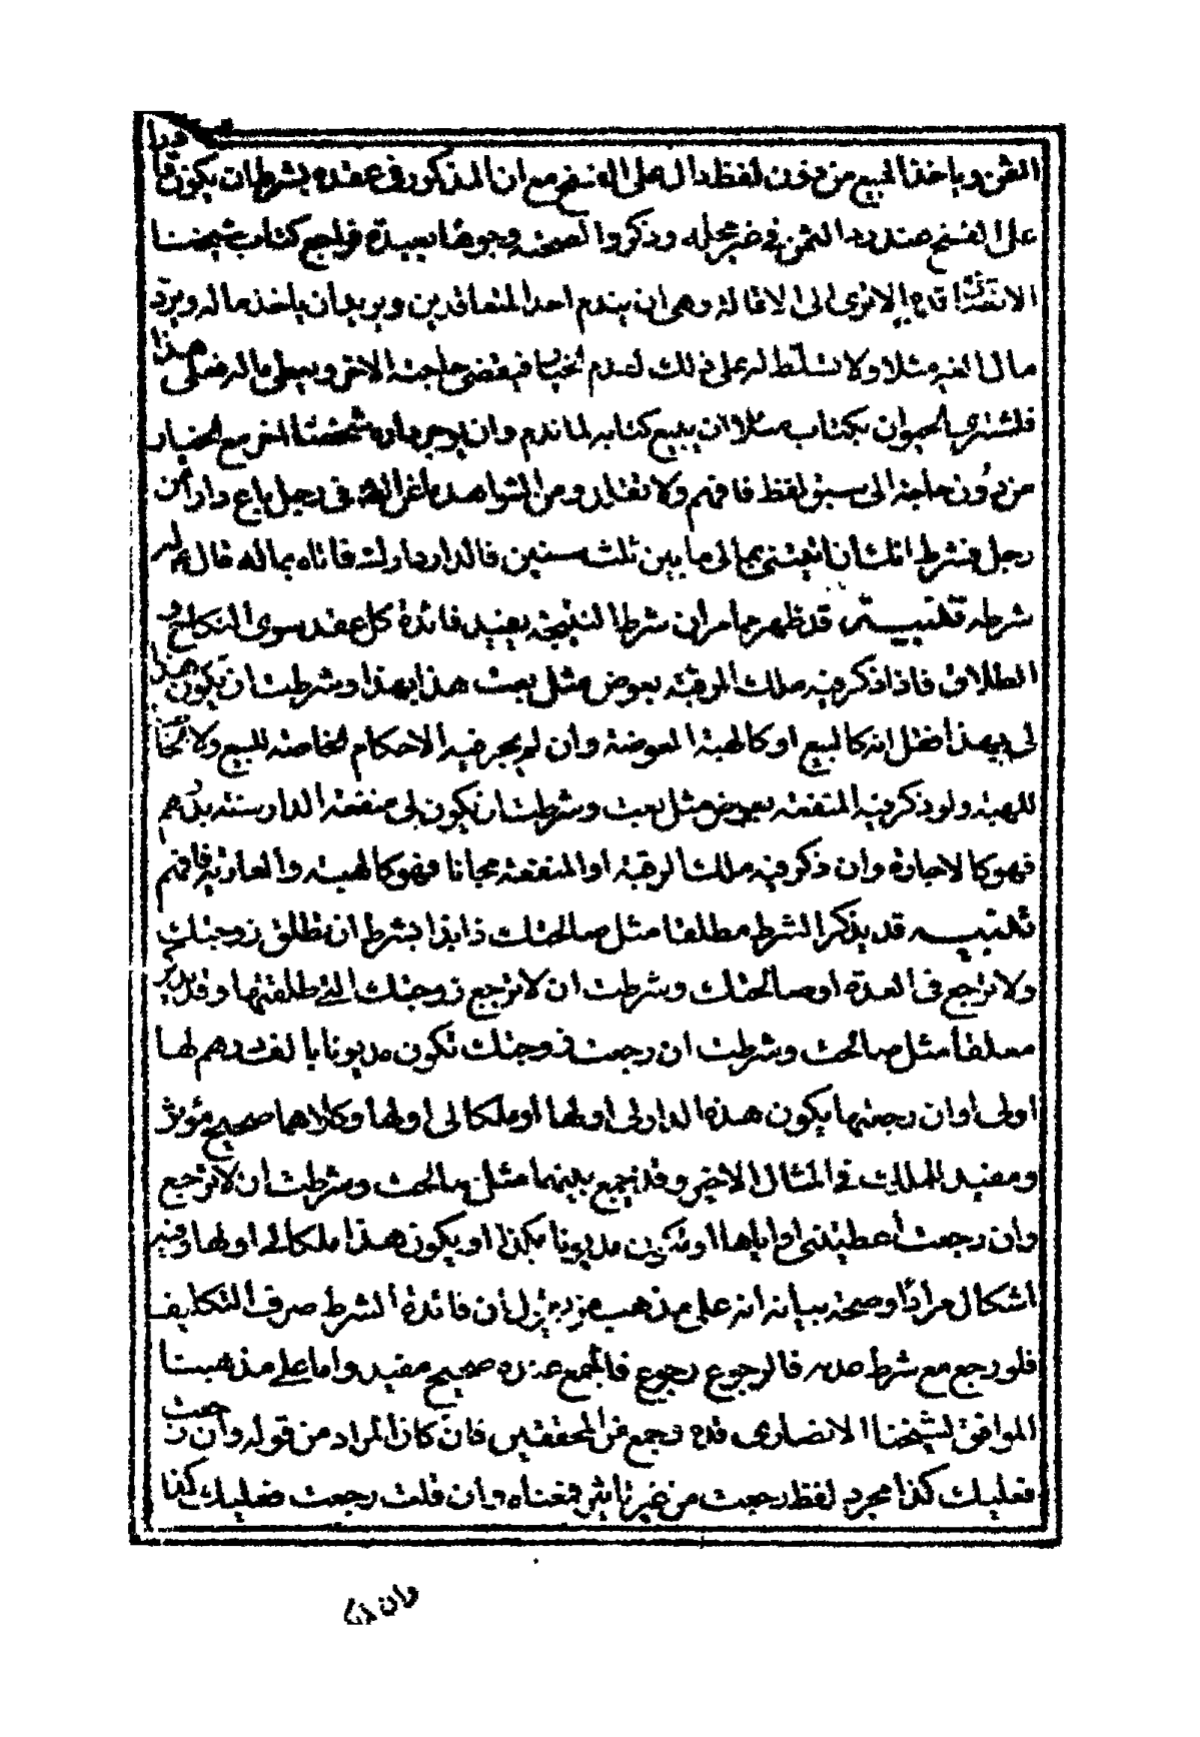 الثمن وياخذ المبيع من دون لفظ دال على الفسخ مع ان المذكور في عقده بشرط ان يكون قادرا
على الفسخ عند رد الثمن في غير محله وذكروا لصحته وجوها بعيدة فراجع كتاب شيخنا
الانصاري قده الا ترى الى الاقالة وهى ان يندم احد المتعاقدين ويريد ان ياخذ ماله ويرد
مال الغير مثلا ولا تسلط له على ذلك لعدم الخيار فيقضى حاجته الاخر ويعطى ماله فعلى هذا
فلمشترى الحيوان بكتاب مثلا ان يبيع كتابه لما ندم وان يوجر داره شخصنا اخر مع الخيار
من دون حاجة الى سبق لفظ فافهم ولا تقلد ومن الشواهد ما عن فى رجل باع دارا من
رجل فشرط انك ان اتيتنى بمالى ما بين ثلث سنين فالدار دارك فاتاه بماله قال له
شرطه تنبيه قد ظهر مما مر ان شرط النتيجة يفيد فائدة كل عقد سوى النكاح و
الطلاق فاذا ذكر فيه ملك الرقبة بعوض مثل بعت هذا بهذا وشرطت ان يكون هذا
لى بهذا فقل انه كالبيع او كالهبة المعوضة وان لم يجر فيه الاحكام الخاصة للبيع ولا
للهبة ولو ذكر فيه المنفعة بعوض مثل بعت وشرطت ان تكون لى منفعة الدار سنة بدرهم
فهو كالاجارة وان ذكر فيه ملك الرقبة او المنفعة مجانا فهو كالهبة والعارية فافهم
تنبيه قد يذكر الشرط مطلقا مثل صالحتك ذا بذا بشرط ان تطلق زوجتك
ولا ترجع فى العدة او صالحتك وشرطت ان لا ترجع زوجتك التي طلقتها وقد يذكر
معلقا مثل صالحت وشرطت ان رجعت زوجتك تكون مديونا بالف درهم لها
او لى او ان رجعتها يكون هذه الدار لى او لها او ملكا لى او لها وكلاهما صحيح مؤثر
ومفيد للملك في المثال الاخير وقد يجمع بينهما مثل صالحت وشرطت ان لا ترجع
وان رجعت اعطيتنى او اياها او تكون مديونا بكذا او يكون هذا ملكا لى او لها وفيه
اشكال مرادا وصحة بيانه انه على مذهب من يقول ان فائدة الشرط صرف التكليف
فلو رجع مع شرط عدمه فالرجوع رجوع فالجمع عنده صحيح مفيد واما على مذهبنا
الموافق لشيخنا الانصارى قده وجمع من المحققين فان كان المراد من قوله وان رجعت
فعليك كذا مجرد لفظ رجعت من غير تاثير فمعناه وان قلت رجعت فعليك كذا
وان كان